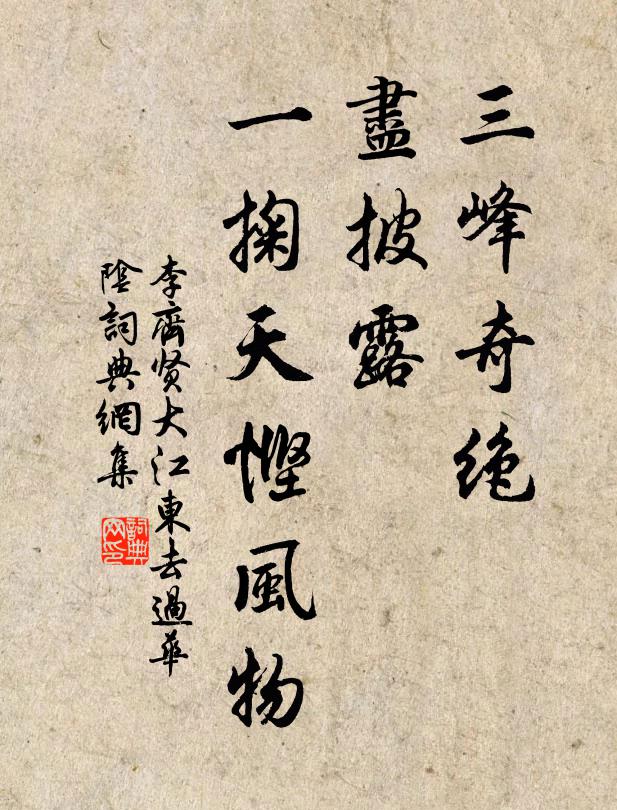 三峰奇絶
盡披露
一掬天慳風物
李齊贤大江東去過華
陰詞典網集
詞典
网印